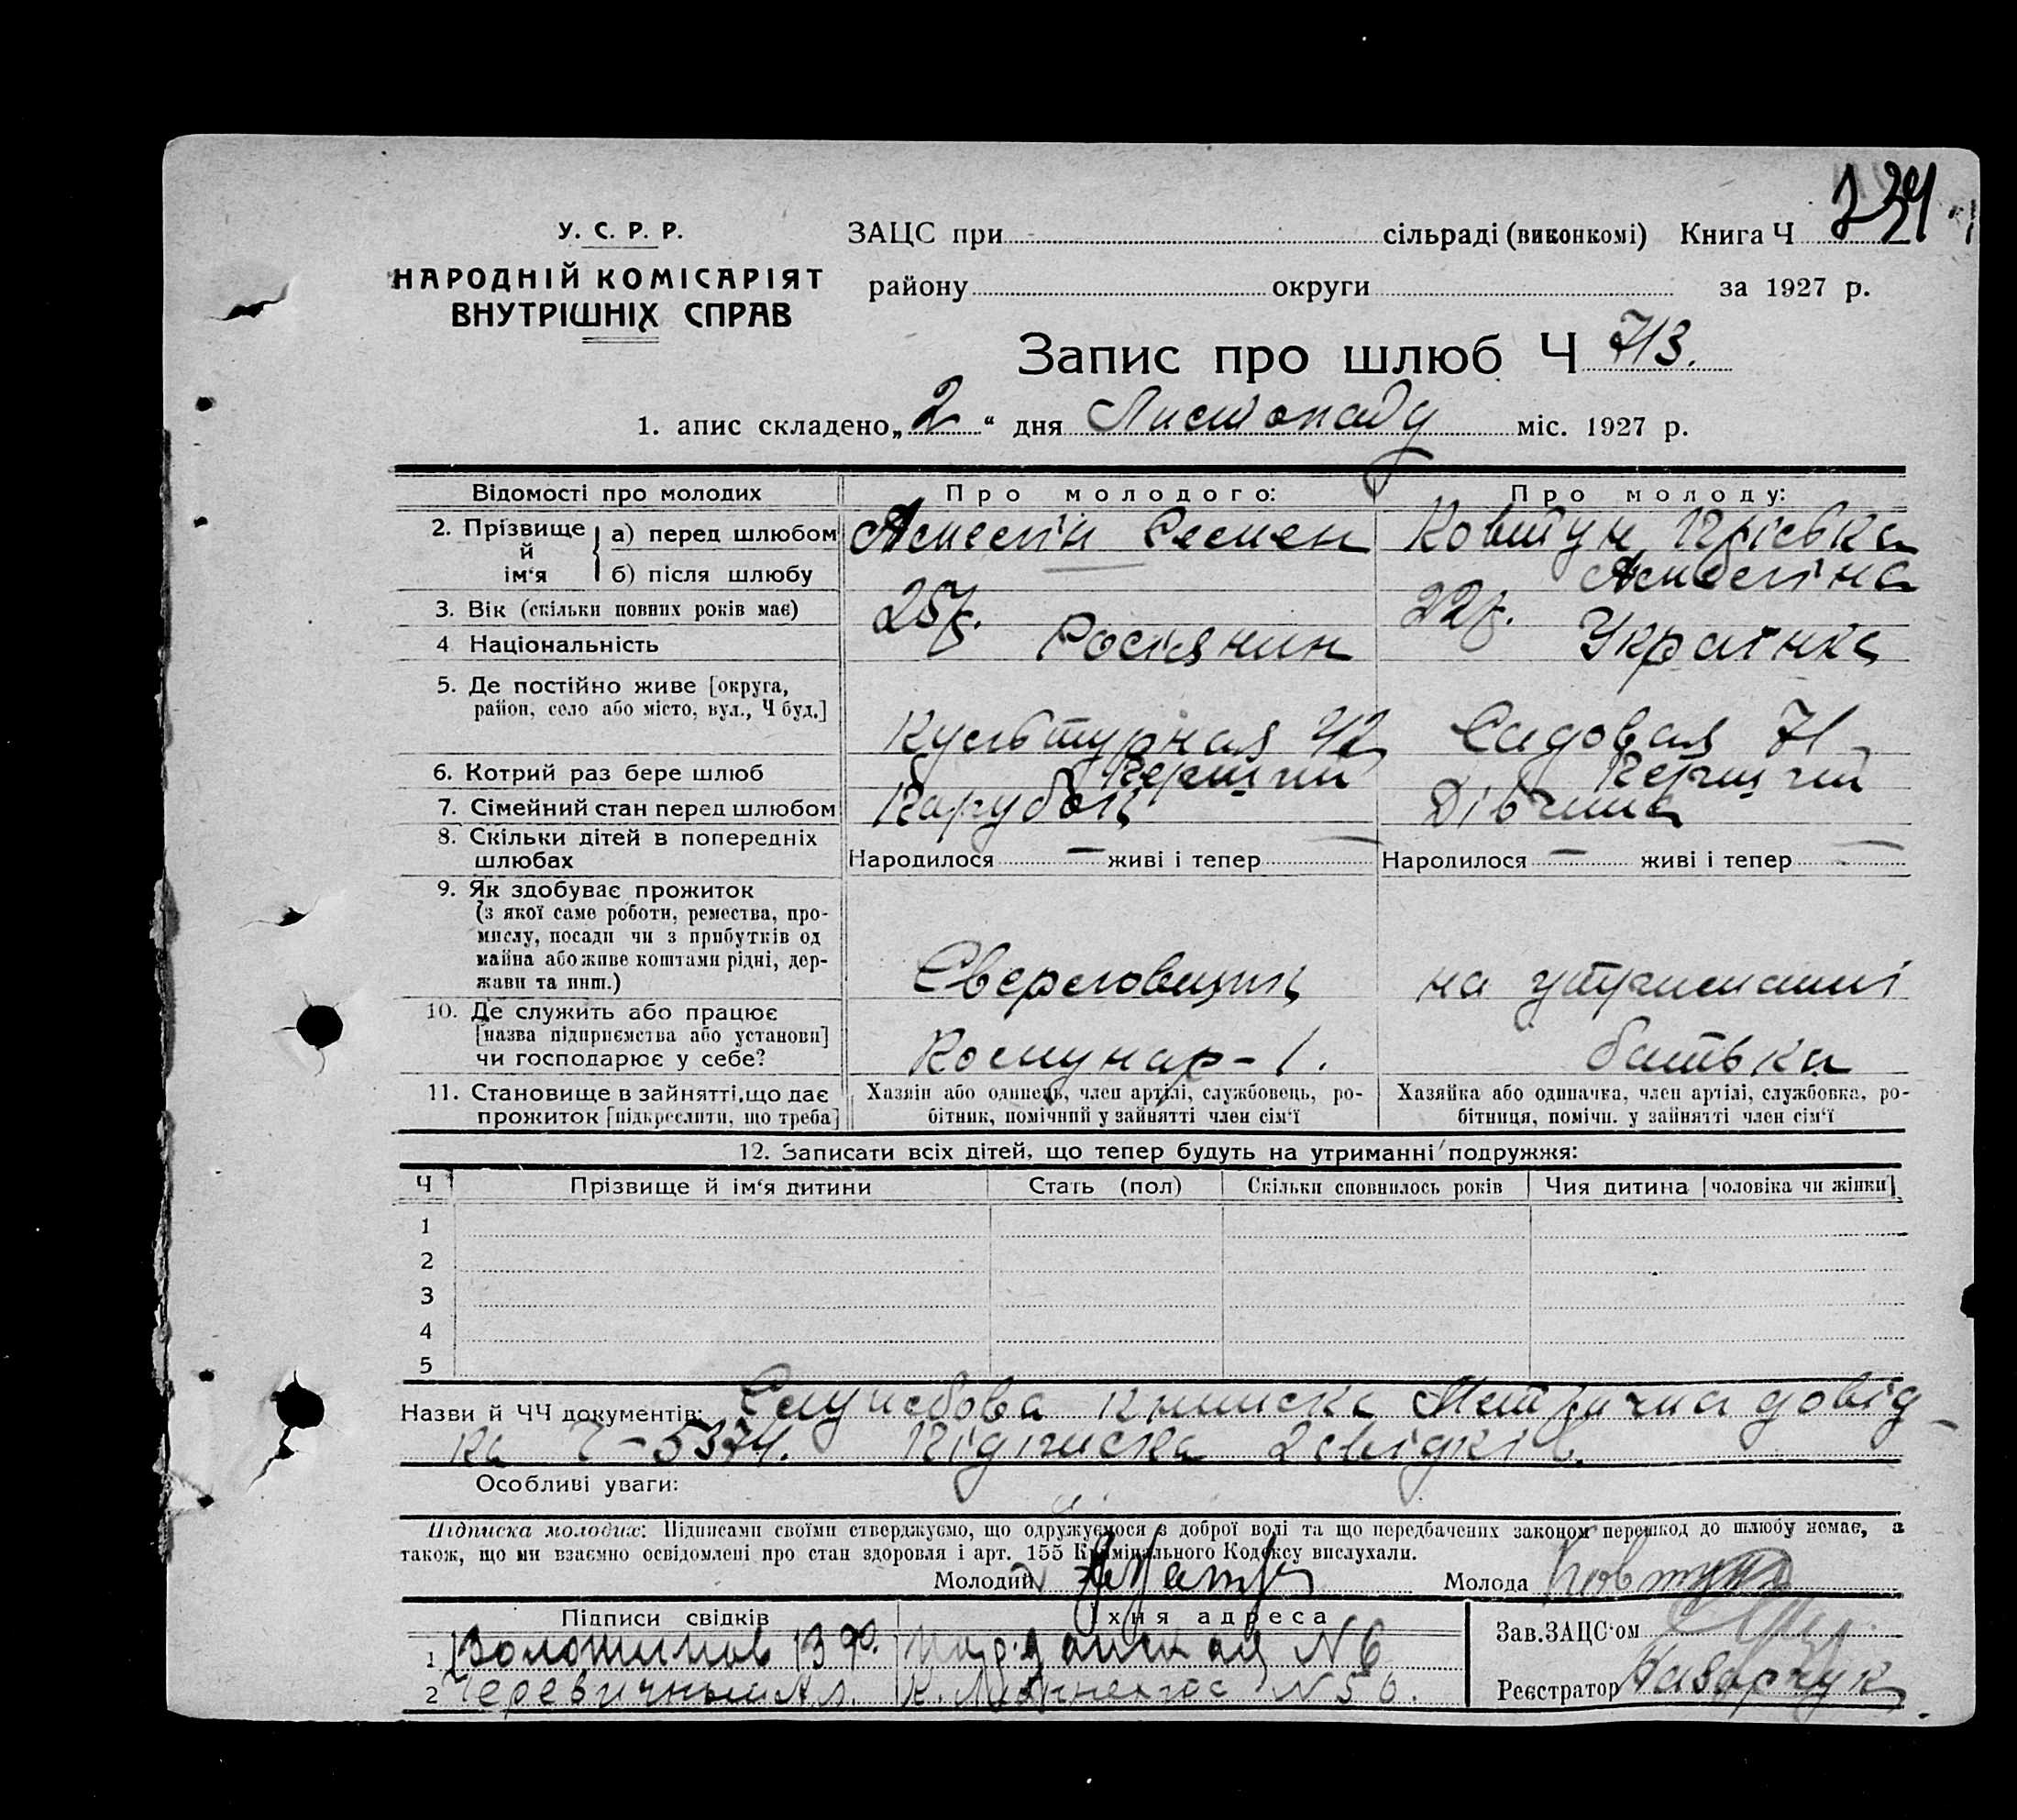 У. С. Р. Р.
НАРОДНІЙ КОМІСАРІЯТ
ВНУТРІШНІХ СПРАВ
ЗАЦС при сільраді (виконкомі) Книга Ч
району округи за 1927 р.
Запис про шлюб Ч 713.
1. апис складено „ 2 “ дня Листопаду міс. 1927 р.
Відомості про молодих Про молодого: Про молоду:
2. Прізвище й ім‘я
а) перед шлюбом Семен Ковтун
б) після шлюбу
3. Вік (скільки повних років має) 25 р. 22 р.
4 Національність Росіянин Українка
5. Де постійно живе [округа,
район, село або місто, вул., Ч буд.]
Культурная 42 Садовая 71
6. Котрий раз бере шлюб Перший Перший
7. Сімейний стан перед шлюбом Парубок Дівчина
8. Скільки дітей в попередніх
шлюбах
Народилося — живі і тепер — Народилося — живі і тепер —
9. Як здобуває прожиток
(з якої саме роботи, ремества, про-
мислу, посади чи з прибутків од
майна або живе коштами рідні, дер-
жави та инш.)
Сверловщик на утриманні
10. Де служить або працює
[назва підприємства або установи]
чи господарює у себе?
Комунар - 1. батька
11. Становище в зайнятті, що дає
прожиток [підкреслити, що треба]
Хазяін або одинець, член артілі, службовець, ро-
бітник, помічний у зайнятті член сім‘ї
Хазяйка або одиначка, член артілі, службовка, ро-
бітниця, помічн. у зайнятті член сім‘ї
12. Записати всіх дітей, що тепер будуть на утриманні подружжя:
Ч Прізвище й ім‘я дитини Стать (пол) Скільки сповнилось років Чия дитина [чоловіка чи жінки]
1
2
3
4
5
Назви й ЧЧ документів: Службова книжка Метрична довід-
ка Ч - 5374. Підписка 2 свідків.
Особливі уваги:
Підписка молодих: Підписами своїми стверджуємо, що одружуємося з доброї волі та що передбачених законом перешкод до шлюбу немає, а
також, що ми взаємно освідомлені про стан здоровля і арт. 155 Кримінального Кодексу вислухали.
Молодий Молода Ковтун
Підписи свідків їхня адреса
1 N 6
2 Черевичный N 50.
Зав. ЗАЦС‘ом
Реєстратор Назарчук